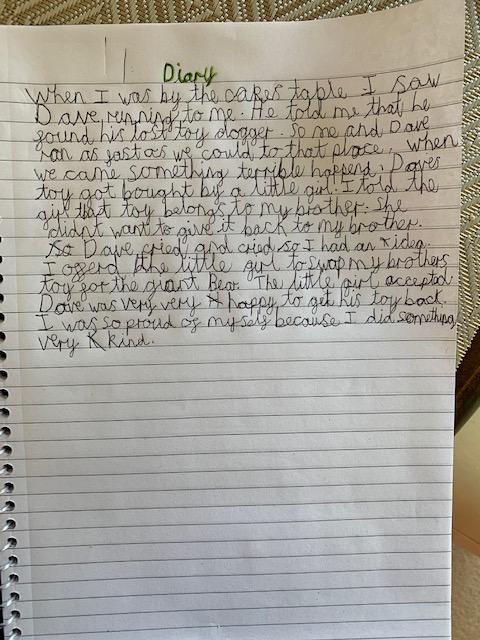 Diary
When I was by the cakes table I saw
Dave running to me. He told me that he
found his lost toy dogger. So me and Dave
ran as fast as we could to that place, when
we came something terrible happend. Daves
toy got bought by a little girl. I told the
girl that toy belongs to my brother. She
didnt want to give it back to my brother.
So Dave cried and cried so I had an idea.
I offerd the little girl to swap my brothers
toy for the giant Bear. The little girl accepted.
Dave was very very happy to get his toy back.
I was so proud of myself because I did something
very kind.